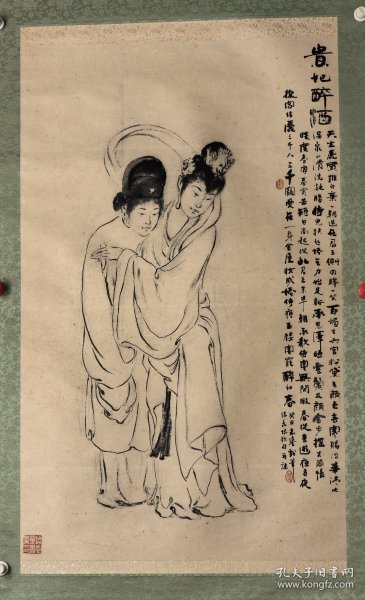 貴妃醉酒
天生麗質難自棄一朝選在君王側回眸一笑百媚生六宮粉黛無顏色春寒賜浴華清池
溫泉水滑洗凝脂侍兒扶起嬌無力始是新承恩澤時雲鬢花顏金步搖芙蓉帳
暖度春宵春宵苦短日高起從此君王不早朝承歡侍宴無閒暇春從春遊夜專夜
後宮佳麗三千人三千寵愛在一身金屋妝成嬌侍夜玉樓宴罷醉和春
孔夫子旧书网